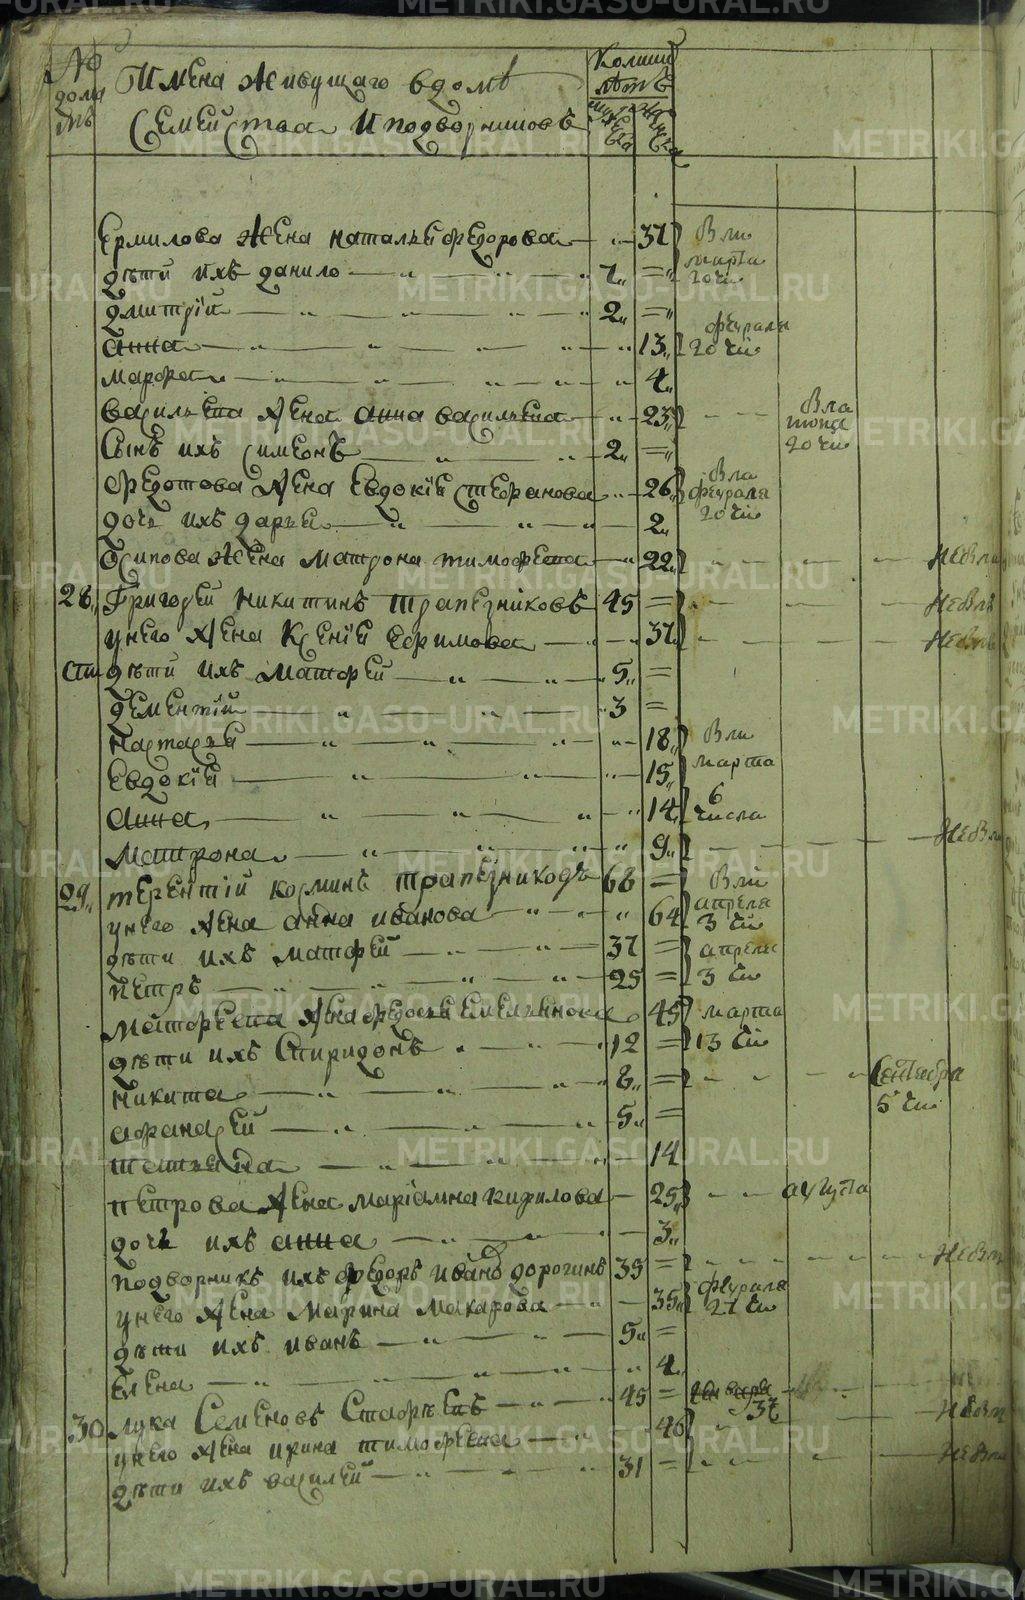 № дома
Имена живущаго в домѣ
семейства и подворниковъ
лѣтъ
Ермилова жена наталья федорова 37 Вли марта 20 чи
дѣти ихъ данило 7
дмитрїй 2
анна 13 февраля 20 чи
марфа 4
васильева жена анна васильева 23 Вла 20 чи
сынъ ихъ симеонъ 2
федотова жена Евдокїя стефанова 26 Вла февраля 20 чи
дочь ихъ дарья 2
осипова жена матрона тимофеева 22 невла
28 григорей никитинъ трапезниковъ 45 невли
у него жена ксенїя ефимова 37 невла
дѣти ихъ матфей 5
дементїй 3
настасья 18 Вли марта
Евдокїя 15
анна 14 6 числа
матрона 9 невли
29 терентїй козминъ трапезниковъ 68 Вли
у него жена анна иванова 64 апреля 3 чи
дѣти ихъ матфей 37 апреля
петръ 25 3 чи
матфеева жена федосья емельянова 45 марта
дѣти ихъ спиридонъ 12 13 чи
никита 8 сентября 5 чи
афанасей 5
татьяна 14
петрова жена марїамна кирилова 25 августа
дочь ихъ анна 3
подворникъ ихъ федоръ иванъ дорогинъ 35 невли
у него жена марина макарова 35 февраля 27 чи
дѣти ихъ иванъ 5
Елена 4
30 лука семеновъ 45 37
у него жена ирина тимофеева 46 невли
дѣти ихъ василей 31 невли
METRIKI.GASO-URAL.RU